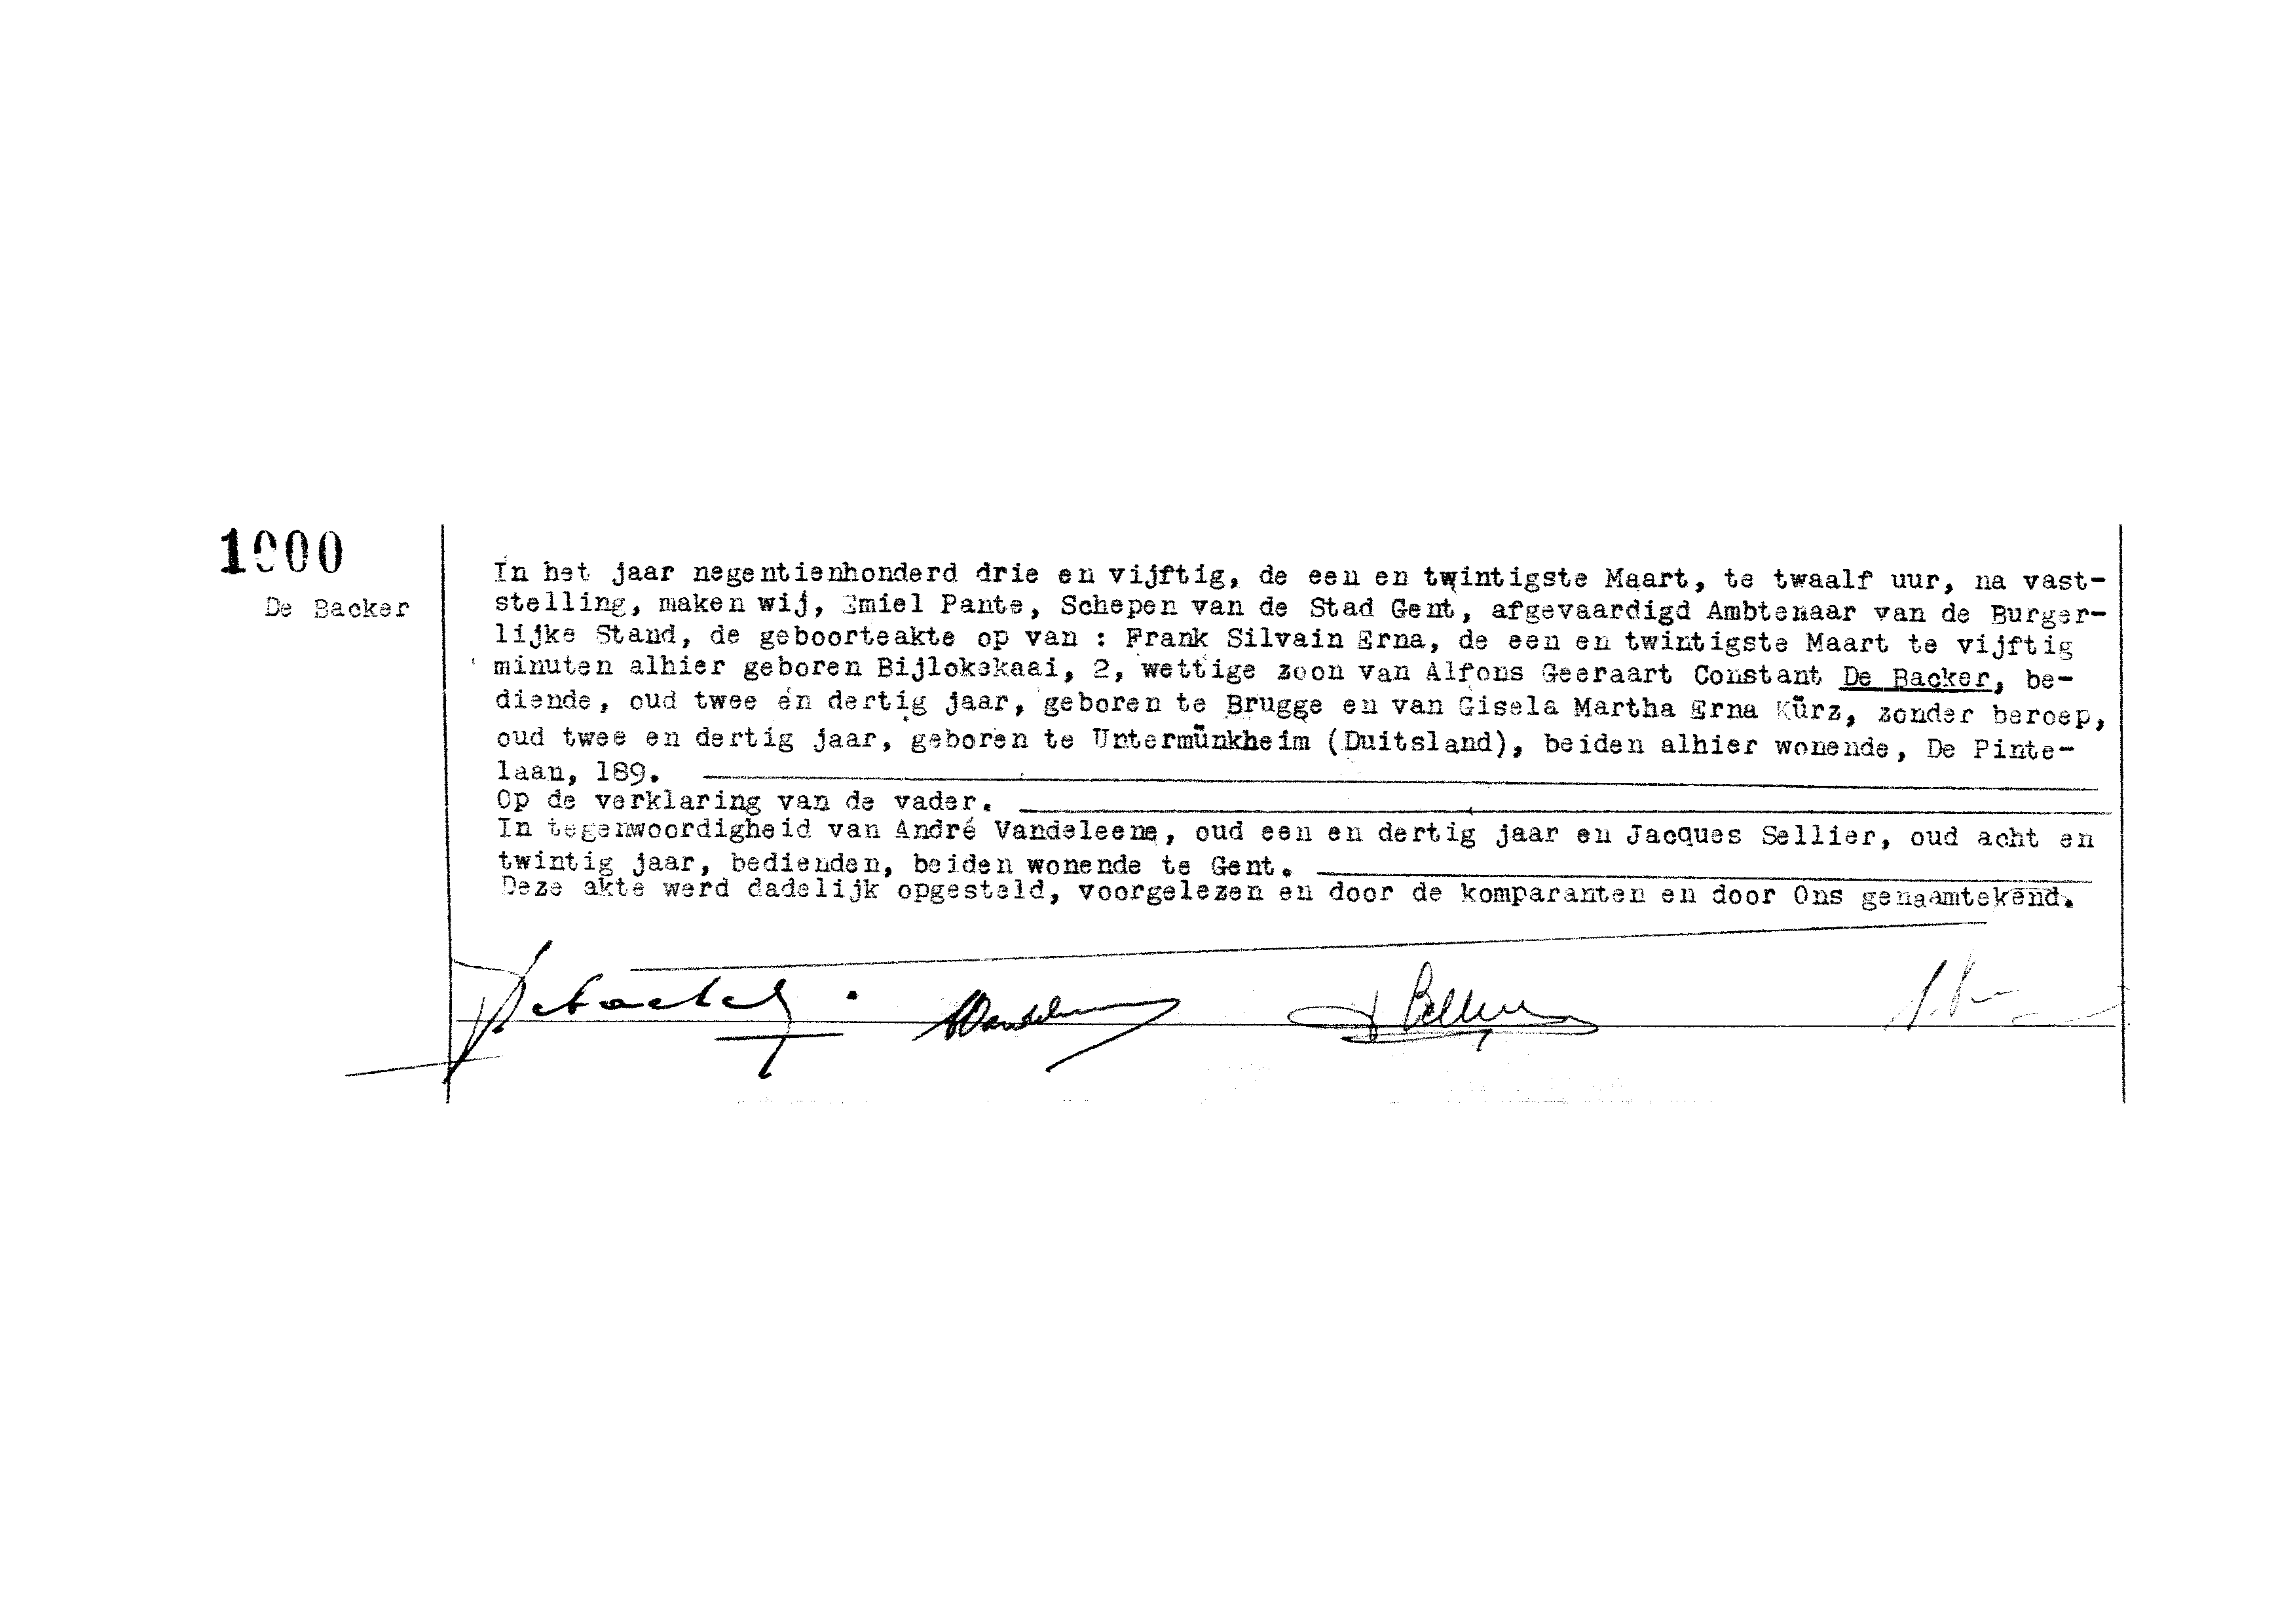 1000
De Backer
In het jaar negentienhonderd drie en vijftig, de een en twintigste Maart, te twaalf uur, na vast-
stelling, maken wij, Emiel Pante, Schepen van de Stad Gent, afgevaardigd Ambtenaar van de Burger-
lijke Stand, de geboorteakte op van : Frank Silvain Erna, de een en twintigste Maart te vijftig
minuten alhier geboren Bijlokekaai, 2, wettige zoon van Alfons Geeraart Constant De Backer, be-
diende, oud twee en dertig jaar, geboren te Brugge en van Gisela Martha Erna Kürz, zonder beroep,
oud twee en dertig jaar, geboren te Untermünkheim (Duitsland), beiden alhier wonende, De Pinte-
laan, 189.
Op de verklaring van de vader.
In tegenwoordigheid van André Vandeleene, oud een en dertig jaar en Jacques Sellier, oud acht en
twintig jaar, bedienden, beiden wonende te Gent.
Deze akte werd dadelijk opgesteld, voorgelezen en door de komparanten en door Ons genaamtekend.